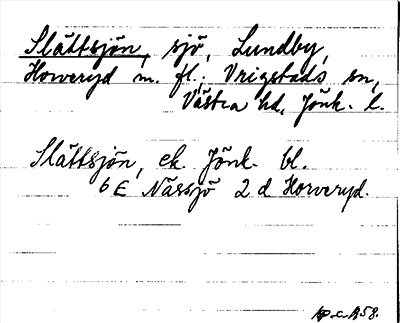 Slättsjön, sjö, Lundby,
Horveryd m. fl.; Vrigstads sn,
Västra hd, Jönk. l.
Slättsjön, ek. Jönk. bl.
6 E Nässjö 2 d Horveryd.